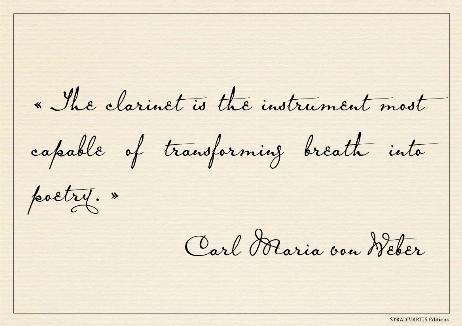 « The clarinet is the instrument most
capable of transforming breath into
poetry. »
Carl Maria von Weber
STRADIVARIUS Editions